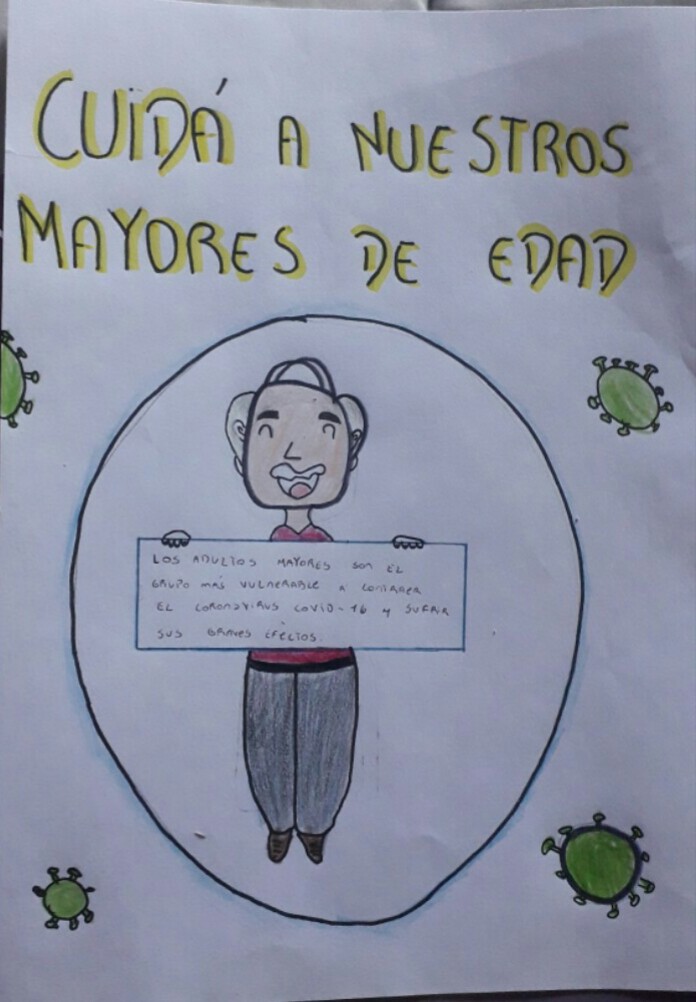 CUIDÁ A NUESTROS
MAYORES DE EDAD
LOS ADULTOS MAYORES SON EL
GRUPO MÁS VULNERABLE A CONTRAER
EL CORONAVIRUS COVID-16 Y SUFRIR
SUS GRAVES EFECTOS.